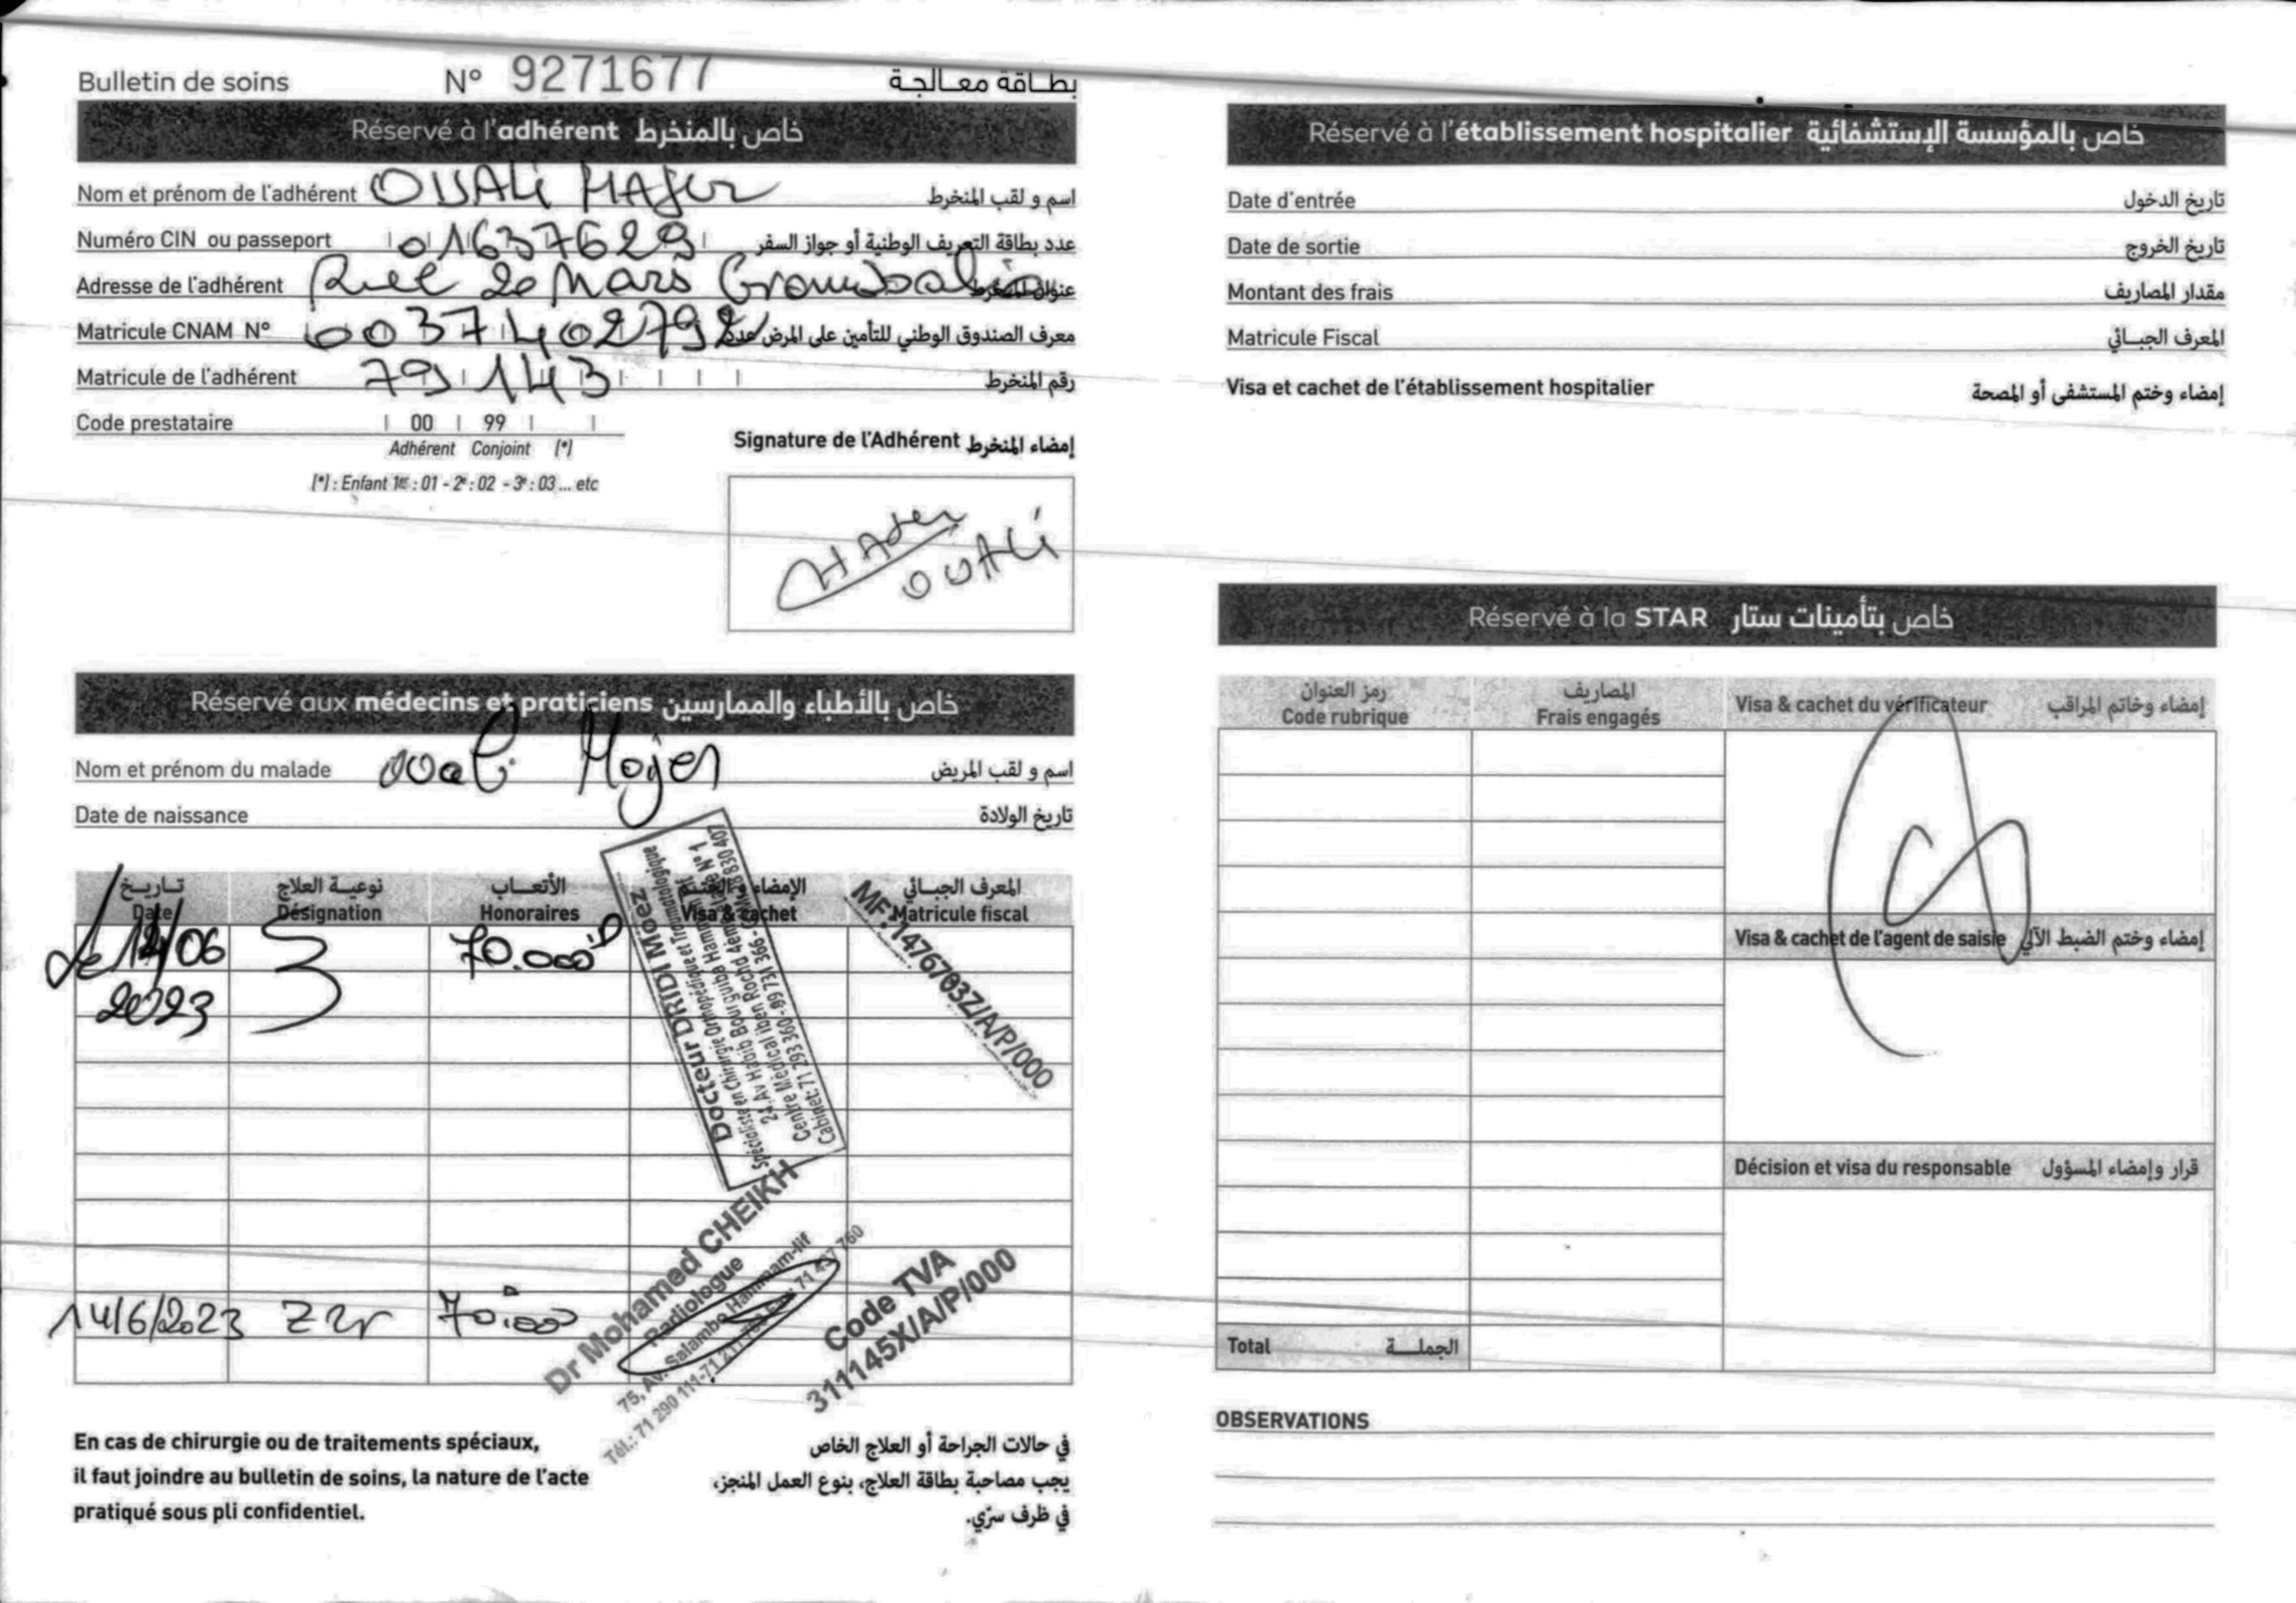 Bulletin de soins N° 9271677 بطاقة معالجة
Réservé à l'adhérent خاص بالمنخرط
Nom et prénom de l'adhérent OUALi HAJER اسم و لقب المنخرط
Numéro CIN ou passeport 01637629 عدد بطاقة التعريف الوطنية أو جواز السفر
Adresse de l'adhérent Rue 20 Mars Grombalia عنوان المنخرط
Matricule CNAM N° 003740279 معرف الصندوق الوطني للتأمين على المرض عدد
Matricule de l'adhérent 791143 رقم المنخرط
Code prestataire 00 99
Adhérent Conjoint (*)
(*) : Enfant 1er : 01 - 2e : 02 - 3e : 03 ... etc
Signature de l'Adhérent إمضاء المنخرط
HAJer
OUALi
Réservé aux médecins et praticiens خاص بالأطباء والممارسين
Nom et prénom du malade Ouali Hajer اسم و لقب المريض
Date de naissance تاريخ الولادة
تاريخ نوعية العلاج الأتعاب الإمضاء و الختم المعرف الجبائي
Date Désignation Honoraires Visa & cachet Matricule fiscal
Le 14/06 70.000D
2023
Docteur DRIDI Moez
Spécialiste en Chirurgie Orthopédique et Traumatologique
24, Av Habib Bourguiba Hammam Lif
Centre Médical iben Rochd 4ème
Cabinet: 71 293 360 - 99 731 366
MF:1476703Z/A/P/000
14/6/2023 70.000
Dr Mohamed CHEIKH
Radiologue
75, Av. Salambo Hammam-lif
Tél.: 71 290 111-71 211
Code TVA
311145X/A/P/000
En cas de chirurgie ou de traitements spéciaux,
il faut joindre au bulletin de soins, la nature de l'acte
pratiqué sous pli confidentiel.
في حالات الجراحة أو العلاج الخاص
يجب مصاحبة بطاقة العلاج، بنوع العمل المنجز،
في ظرف سرّي.
Réservé à l'établissement hospitalier خاص بالمؤسسة الإستشفائية
Date d'entrée تاريخ الدخول
Date de sortie تاريخ الخروج
Montant des frais مقدار المصاريف
Matricule Fiscal المعرف الجبائي
Visa et cachet de l'établissement hospitalier إمضاء وختم المستشفى أو المصحة
Réservé à la STAR خاص بتأمينات ستار
رمز العنوان المصاريف
Code rubrique Frais engagés Visa & cachet du vérificateur إمضاء وخاتم المراقب
Visa & cachet de l'agent de saisie إمضاء وختم الضبط الآلي
Décision et visa du responsable قرار وإمضاء المسؤول
Total الجملة
OBSERVATIONS